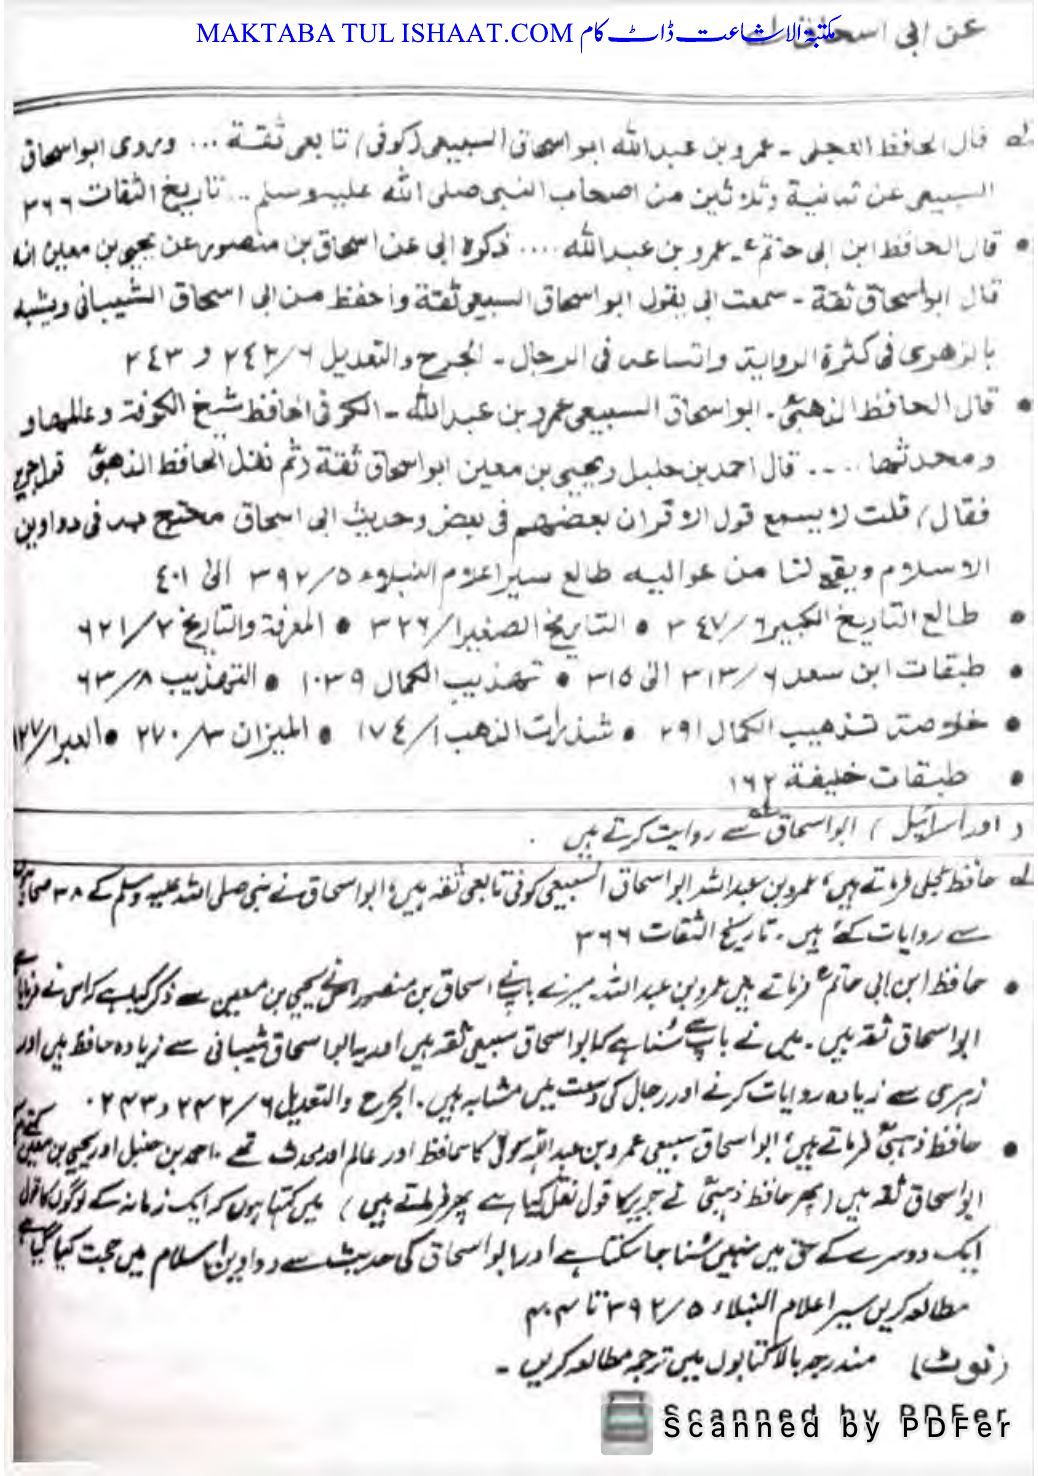 عن ابی اسحاق
MAKTABA TUL ISHAAT.COM مکتبۃ الاشاعت ڈاٹ کام
لہ قال الحافظ العجلی ۔ عمرو بن عبداللہ ابو اسحاق السبیعی (کوفی) تابعی ثقۃ ... وروی ابو اسحاق
السبیعی عن ثمانیۃ وثلاثین من اصحاب النبی صلی اللہ علیہ وسلم .. تاریخ الثقات ۳۶۶
• قال الحافظ ابن ابی حاتمؒ ۔ عمرو بن عبداللہ .... ذکرہ ابی عن اسحاق بن منصور عن یحیی بن معین انہ
قال ابو اسحاق ثقۃ ۔ سمعت ابی یقول ابو اسحاق السبیعی ثقۃ واحفظ من ابی اسحاق الشیبانی ویشبہ
بالزھری فی کثرۃ الروایۃ واتساعہ فی الرجال ۔ الجرح والتعدیل ۶/۲٤۲ و ۲٤۳
• قال الحافظ الذھبیؒ ۔ ابو اسحاق السبیعی عمرو بن عبداللہ ۔ الحافظ شیخ الکوفۃ وعالمھا و
ومحدثھا .... قال احمد بن حنبل ویحیی بن معین ابو اسحاق ثقۃ (ثم نقل الحافظ الذھبیؒ
فقال) قلت لا یسمع قول الاقران بعضھم فی بعض وحدیث ابی اسحاق محتج بہ فی دواوین
الاسلام ویقع لنا من عوالیہ طالع سیر اعلام النبلاء ۵/۳۹۲ الی ٤۰۱
• طالع التاریخ الکبیر ۶/۳٤۷ • التاریخ الصغیر ۱/۳۲۶ • المعرفۃ والتاریخ ۲/۶۲۱
• طبقات ابن سعد ۶/۳۱۳ الی ۳۱۵ • تھذیب الکمال ۱۰۳۹ • التھذیب ۸/۶۳
• خلاصۃ تذھیب الکمال ۲۹۱ • شذرات الذھب ۱/۱۷٤ • المیزان ۳/۲۷۰ • العبر ۱/۱۲۷
• طبقات خلیفۃ ۱۶۲
(اور اسرائیل) ابو اسحاق لہ سے روایت کرتے ہیں .
لہ حافظ عجلی فرماتے ہیں، عمرو بن عبداللہ ابو اسحاق السبیعی کوفی تابعی ثقہ ہیں، ابو اسحاق نے نبی صلی اللہ علیہ وسلم کے ۳۸ صحابہ
سے روایات کئے ہیں۔ تاریخ الثقات ۳۶۶
• حافظ ابن ابی حاتمؒ فرماتے ہیں عمرو بن عبداللہ۔ میرے باپ نے اسحاق بن منصور یحیی بن معین سے ذکر کیا ہے کہ اس نے فرمایا
ابو اسحاق ثقہ ہیں۔ میں نے باپ سے سُنا ہے کہ ابو اسحاق سبیعی ثقہ ہیں اور یہ ابو اسحاق شیبانی سے زیادہ حافظ ہیں اور
زہری سے زیادہ روایات کرنے اور رجال کی وسعت میں مشابہ ہیں۔ الجرح والتعدیل ۶/۲۴۲ و ۲۴۳۔
• حافظ ذہبیؒ فرماتے ہیں، ابو اسحاق سبیعی عمرو بن عبداللہ حافظ اور عالم اور محدث تھے۔ احمد بن حنبل اور یحیی بن معین کہتے
ابو اسحاق ثقہ ہیں (پھر حافظ ذہبیؒ نے جریر کا قول نقل کیا ہے پھر فرماتے ہیں) میں کہتا ہوں کہ ایک زمانہ کے لوگوں کا قول
ایک دوسرے کے حق میں نہیں سُنا جا سکتا ہے اور ابو اسحاق کی حدیث سے دواوین اسلام میں حجت کیا گیا ہے
مطالعہ کریں سیر اعلام النبلاء ۵/۳۹۲ تا
(نوٹ) مندرجہ بالا کتابوں میں ترجمہ مطالعہ کریں ۔
Scanned by PDFer
Scanned by PDFer